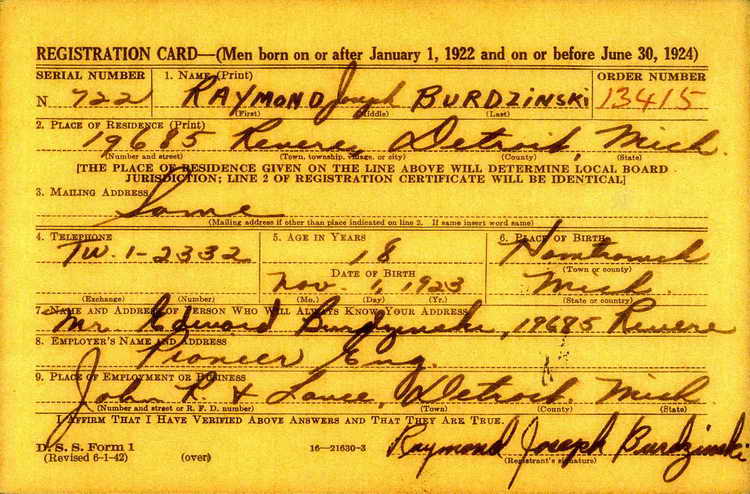 REGISTRATION CARD—(Men born on or after January 1, 1922 and on or before June 30, 1924)
SERIAL NUMBER 1. NAME (Print) ORDER NUMBER
N 722 RAYMOND Joseph BURDZINSKI 13415
(First) (Middle) (Last)
2. PLACE OF RESIDENCE (Print)
19685 Revere, Detroit, Mich.
(Number and street) (Town, township, village, or city) (County) (State)
[THE PLACE OF RESIDENCE GIVEN ON THE LINE ABOVE WILL DETERMINE LOCAL BOARD
JURISDICTION; LINE 2 OF REGISTRATION CERTIFICATE WILL BE IDENTICAL]
3. MAILING ADDRESS
Same
(Mailing address if other than place indicated on line 2. If same insert word same)
4. TELEPHONE 5. AGE IN YEARS 6. PLACE OF BIRTH
TW. 1-2332 18 Hamtramck
DATE OF BIRTH (Town or county)
Nov. 1, 1923 Mich.
(Exchange) (Number) (Mo.) (Day) (Yr.) (State or country)
7. NAME AND ADDRESS OF PERSON WHO WILL ALWAYS KNOW YOUR ADDRESS
Mr Edward Burdzinski, 19685 Revere
8. EMPLOYER'S NAME AND ADDRESS
Pioneer Eng.
9. PLACE OF EMPLOYMENT OR BUSINESS
John R. & Detroit, Mich.
(Number and street or R. F. D. number) (Town) (County) (State)
I AFFIRM THAT I HAVE VERIFIED ABOVE ANSWERS AND THAT THEY ARE TRUE.
D. S. S. Form 1 16—21630-3 Raymond Joseph Burdzinski
(Revised 6-1-42) (over) (Registrant's signature)